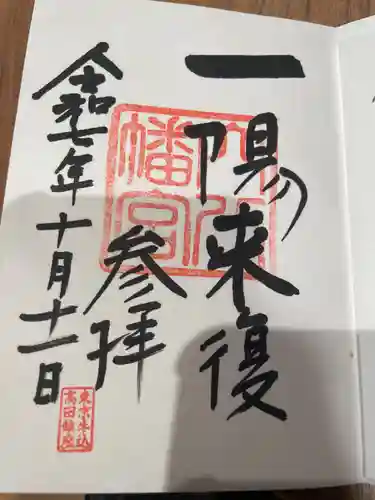 一陽来復
参拝
令和七年十月十一日
八幡宮
東京牛込
高田鎮座